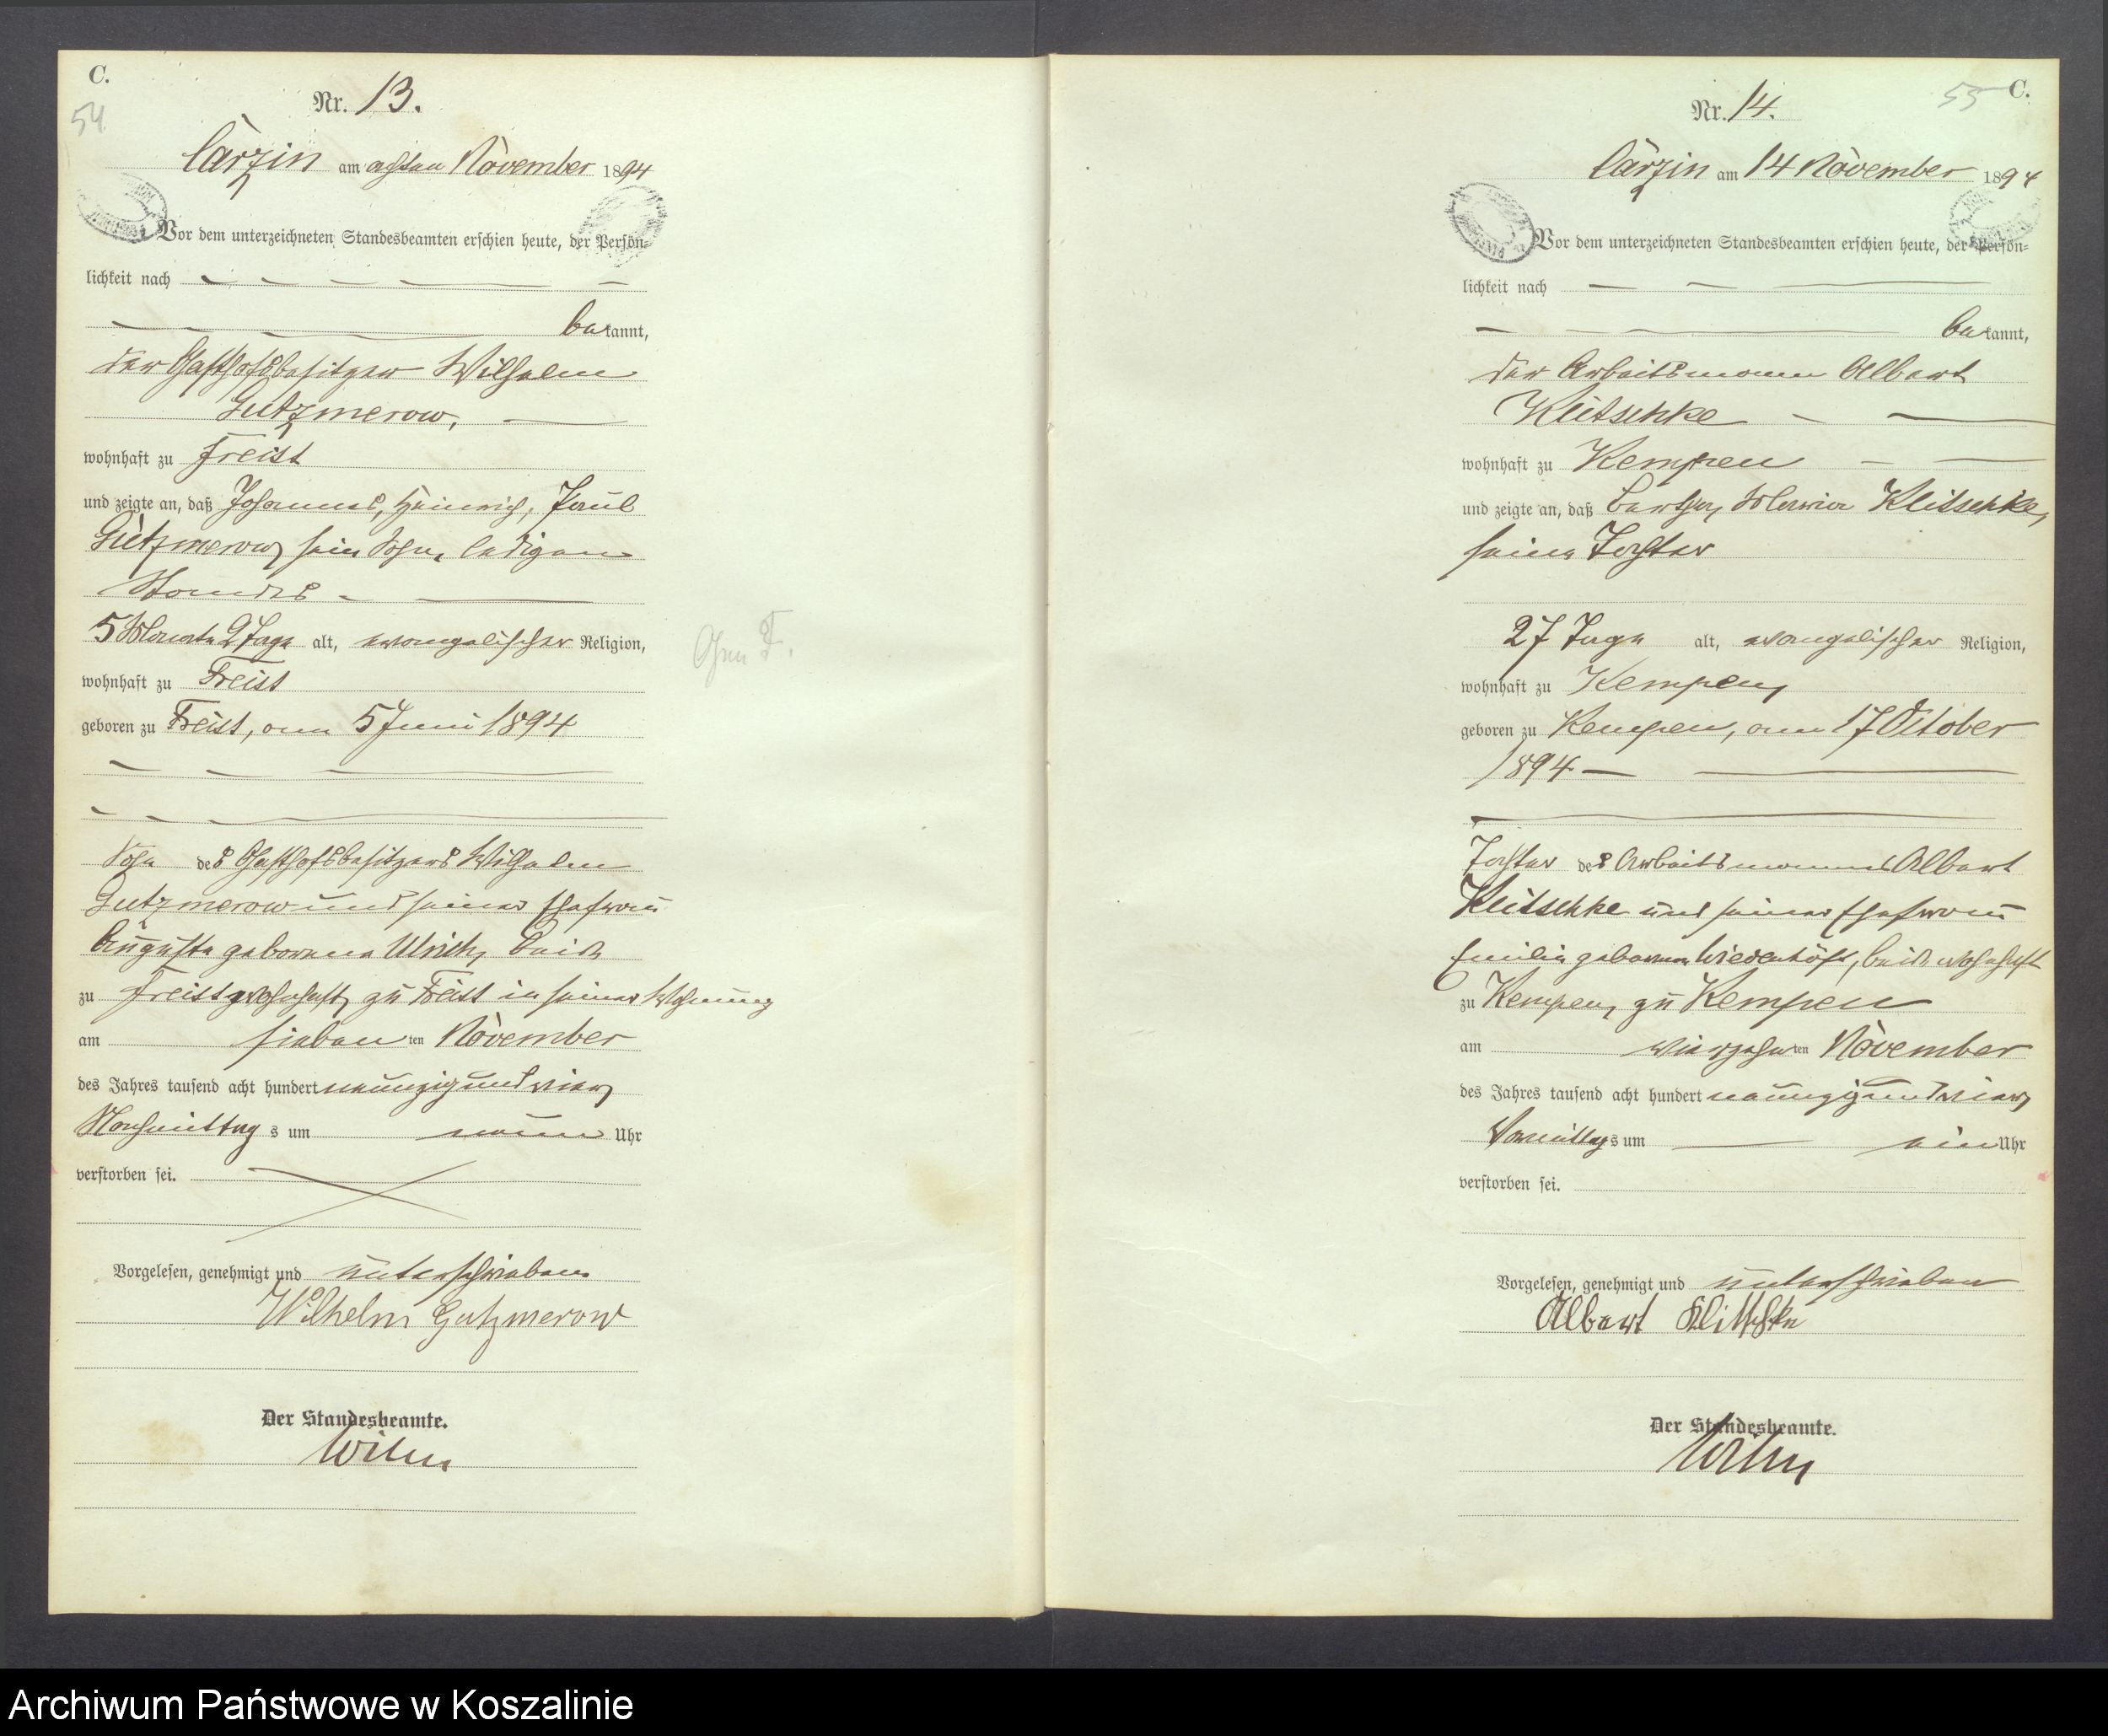 C.
54
Nr. 13.
Carzin am achten November 1894
Vor dem unterzeichneten Standesbeamten erschien heute, der Persön-
lichkeit nach
bekannt,
der Gasthofsbesitzer Wilhelm
Gutzmerow,
wohnhaft zu Freist
und zeigte an, daß Johannes, Heinrich, Paul
Gutzmerow, sein Sohn, ledigen
Standes
5 Monate 2 Tage alt, evangelischer Religion,
wohnhaft zu Freist
geboren zu Freist, am 5 Juni 1894
Sohn des Gasthofsbesitzers Wilhelm
Gutzmerow und seiner Ehefrau
Auguste geborene Ulrich, beide
zu Freist wohnhaft, zu Freist in seiner Wohnung
am sieben ten November
des Jahres tausend acht hundert neunzig und vier,
Nachmittag s um neun Uhr
verstorben sei.
Vorgelesen, genehmigt und unterschrieben
Wilhelm Gutzmerow
Der Standesbeamte.
Wilm
55 C.
Nr. 14.
Carzin am 14 November 1894
Vor dem unterzeichneten Standesbeamten erschien heute, der Persön-
lichkeit nach
bekannt,
der Arbeitsmann Albert
Klitschke
wohnhaft zu Kempen
und zeigte an, daß Bertha, Maria Klitschke,
seine Tochter
27 Tage alt, evangelischer Religion,
wohnhaft zu Kempen,
geboren zu Kempen, am 17 October
1894
Tochter des Arbeitsmanns Albert
Klitschke und seiner Ehefrau
Emilie geborene Wiedenhöft, beide wohnhaft
zu Kempen, zu Kempen
am vierzehn ten November
des Jahres tausend acht hundert neunzig und vier,
Vormittags um ein Uhr
verstorben sei.
Vorgelesen, genehmigt und unterschrieben
Albert Klitschke
Der Standesbeamte.
Wilm
Archiwum Państwowe w Koszalinie